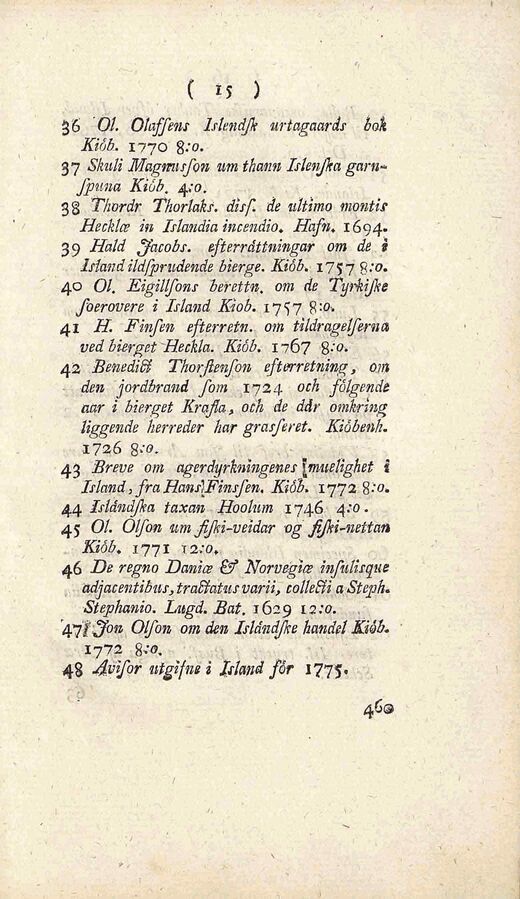 ( 15 )
36 Ol. Olaſſens Islendſk urtagaards bok
Kiób. 1770 8:o.
37 Skuli Magnusſon um thann Islenſka garn-
ſpuna Kiób. 4:o.
38 Thordr Thorlaks. disſ. de ultimo montis
Hecklæ in Islandia incendio. Hafn. 1694.
39 Hald Jacobs. efterráttningar om de i
Island ildſprudende bierge. Kiób. 1757 8:o.
40 Ol. Eigillſons berettn. om de Tyrkiſke
ſoerovere i Island Kiob. 1757 8:o.
41 H. Finſen efterretn. om tildragelſerna
ved bierget Heckla. Kiób. 1767 8:o.
42 Benedict Thorſtenſon efterretning, om
den jordbrand ſom 1724 och fólgende
aar i bierget Krafla, och de dár omkring
liggende herreder har grasſeret. Kióbenh.
1726 8:o.
43 Breve om agerdyrkningenes muelighet i
Island, fra Hans Finsſen. Kiób. 1772 8:o.
44 Islándſka taxan Hoolum 1746 4:o.
45 Ol. Olſon um fiſki-veidar og fiſki-nettan
Kiób. 1771 12:o.
46 De regno Daniæ & Norvegiæ inſulisque
adjacentibus, tractatus varii, collecti a Steph.
Stephanio. Lugd. Bat. 1629 12:o.
47 Jon Olſon om den Islándſke handel Kiób.
1772 8:o.
48 Aviſor utgifne i Island fór 1775.
460